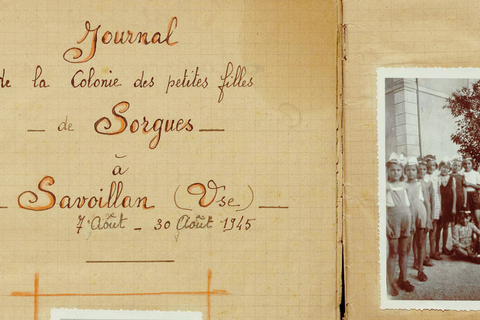 Journal
de la Colonie des petites filles
— de Sorgues —
à
— Savoillan (Vse) —
7 Août - 30 Août 1945